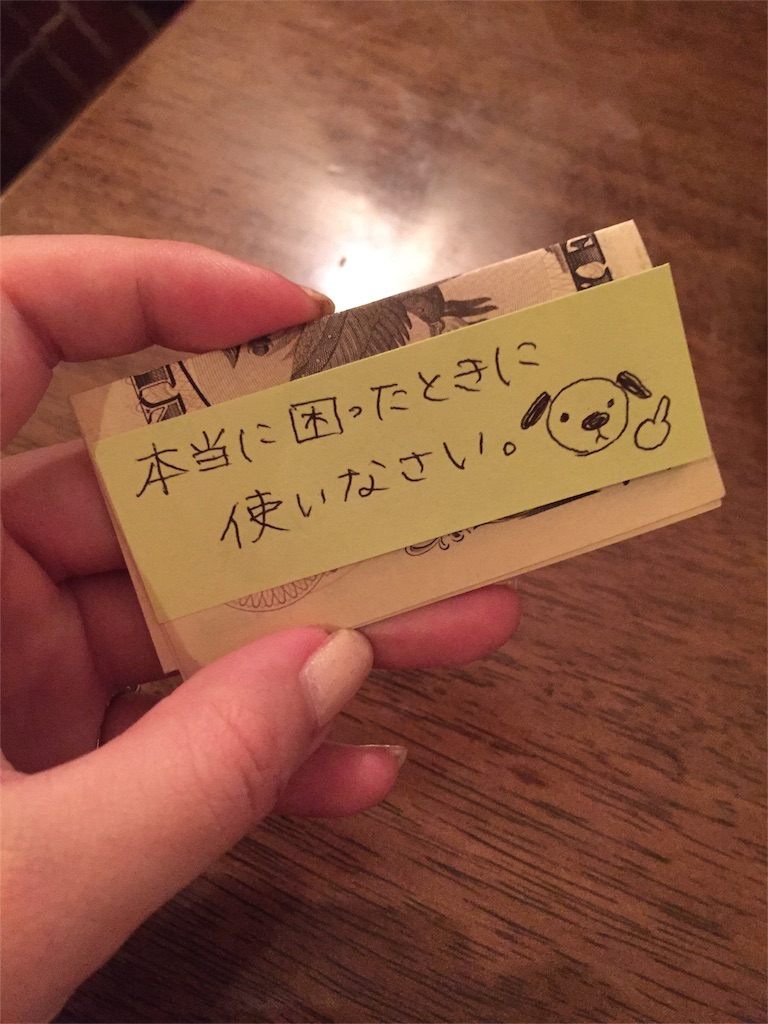 本当に困ったときに
使いなさい。